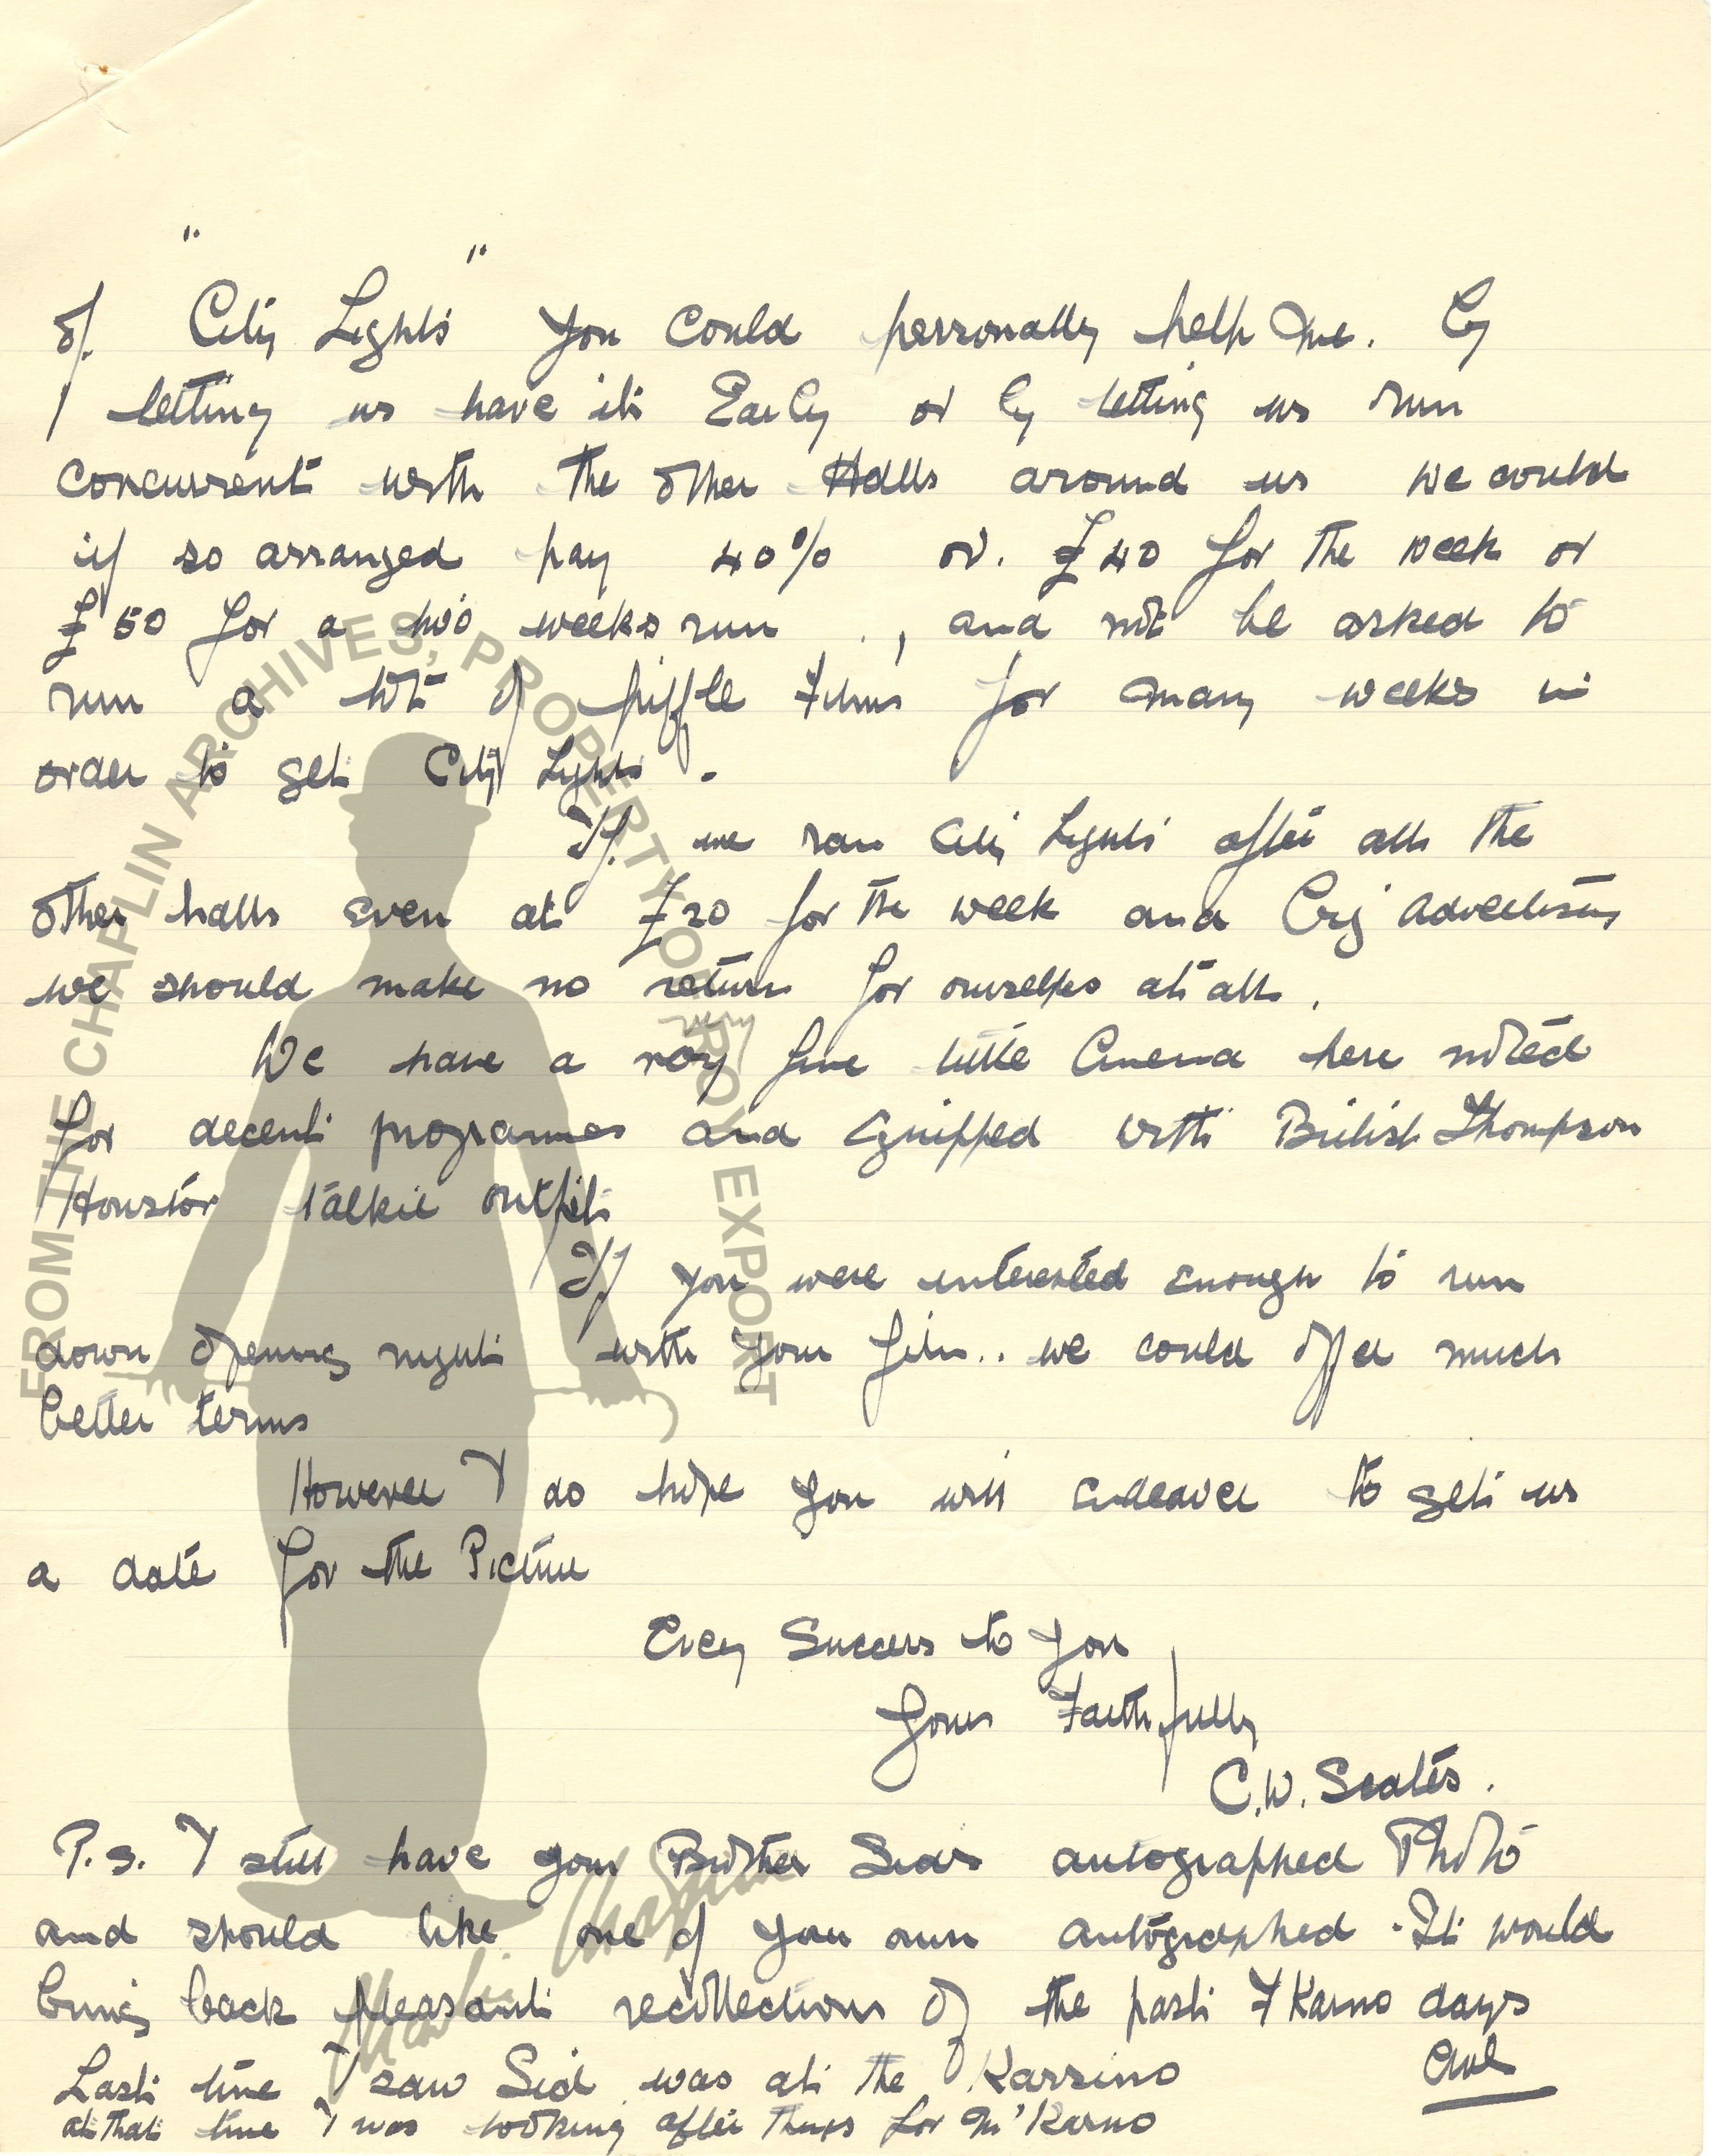 of. "City Lights" you could personally help me. by
letting us have it Early or by letting us run
concurrent with the other Halls around us we could
if so arranged pay 40% or. £40 for the week or
£50 for a two weeks run . , and not be asked to
run a lot of piffle Films for many weeks in
order to get City Lights.
If. we ran City Lights after all the
other halls even at £20 for the week and big advertising
we should make no return for ourselves at all.
very
We have a roy fine little Cinema here noted
for decent programmes and Equipped with British Thompson
Houston talkie outfit
If you were interested enough to run
down opening night with your film.. we could offer much
better terms
However I do hope you will endeaver to get us
a date for the Picture
Every Success to you
Yours Faithfully
C.W. Seates.
P.S. I still have your Brother Sids autographed Photo
and should like one of your own autographed - It would
bring back pleasant recollections of the past F Karno days
Last time I saw Sid was at the Karsino
at that time I was looking after things for Mr Karno
FROM THE CHAPLIN ARCHIVES, PROPERTY OF ROY EXPORT
Charlie Chaplin